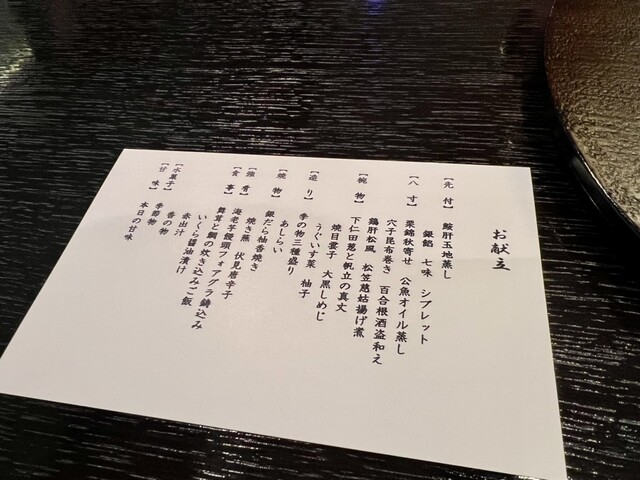 お献立
【先付】 鮟肝玉地蒸し
銀餡 七味 シブレット
【八寸】 栗錦秋寄せ 公魚オイル蒸し
穴子昆布巻き 百合根酒盗和え
鶏肝松風 松笠慈姑揚げ煮
【椀物】 下仁田葱と帆立の真丈
焼目雲子 大黒しめじ
うぐいす菜 柚子
【造り】 季の物三種盛り
あしらい
【焼物】 銀だら柚香焼き
焼き蕪 伏見唐辛子
【強肴】 海老芋饅頭フォアグラ鋳込み
【食事】 舞茸と鯛の炊き込みご飯
いくら醤油漬け
赤出汁
香の物
【水菓子】 季節物
【甘味】 本日の甘味